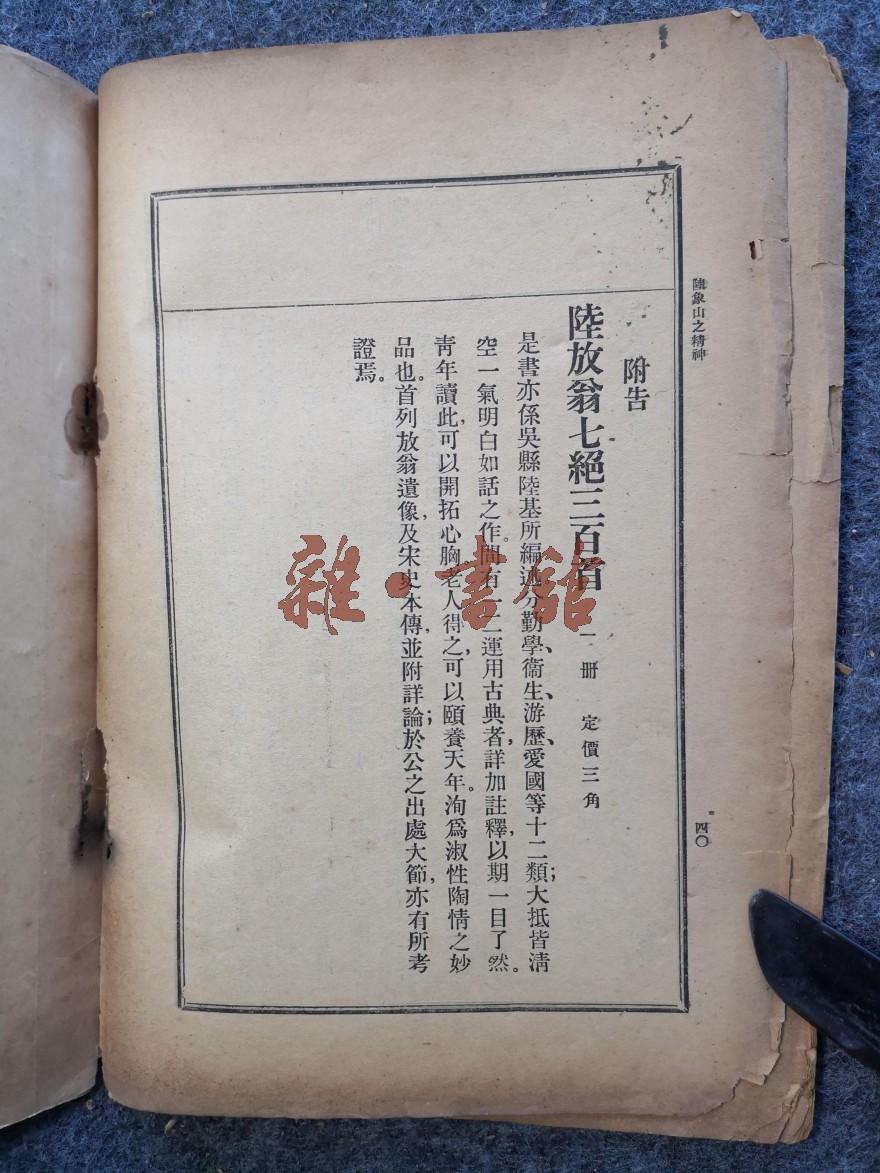 陸象山之精神
四〇
附告
陸放翁七絕三百首 一册 定價三角
是書亦係吳縣陸基所編述分勤學、衞生、游歷、愛國等十二類;大抵皆淸
空一氣明白如話之作。間有一二運用古典者,詳加註釋,以期一目了然。
靑年讀此,可以開拓心胸老人得之,可以頤養天年。洵爲淑性陶情之妙
品也。首列放翁遺像,及宋史本傳,並附詳論;於公之出處大節,亦有所考
證焉。
雜·書館